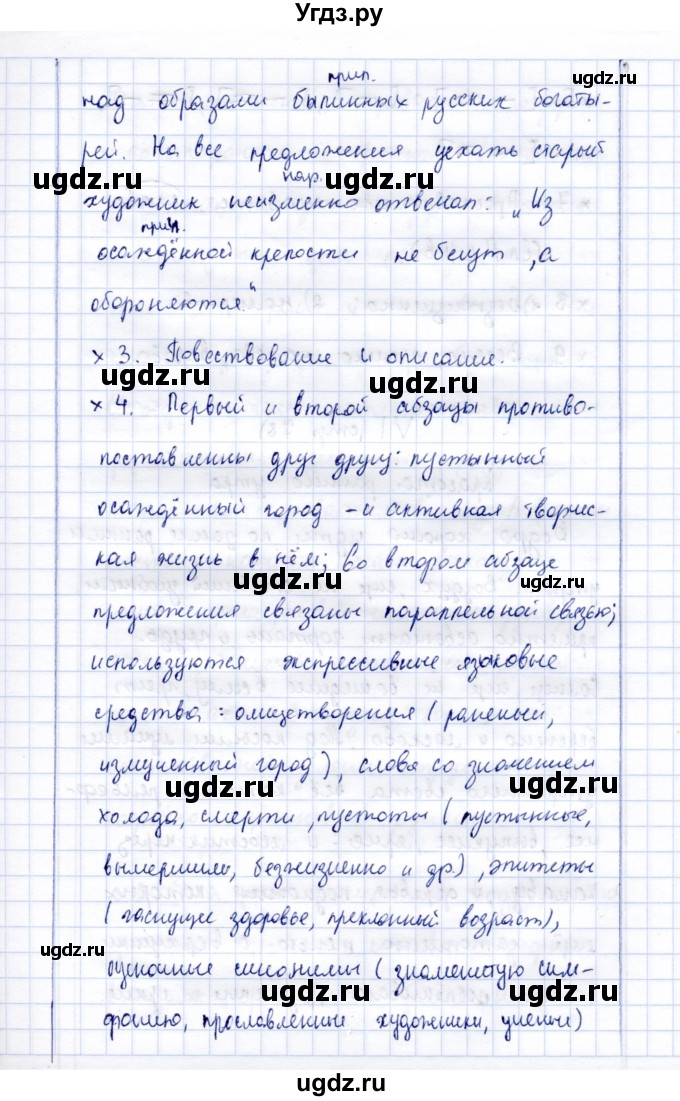 Угдз.ру
прил.
над образами былинных русских богаты-
рей. На все предложения уехать старый
нар.
художник неизменно отвечал: „Из
прич.
осаждённой крепости не бегут, а
обороняются."
× 3. Повествование и описание.
× 4. Первый и второй абзацы противо-
поставленны друг другу: пустынный
осаждённый город – и активная творчес-
кая жизнь в нём; во втором абзаце
предложения связаны параллельной связью;
используются экспрессивные языковые
средства: олицетворения (раненый,
измученный город), слова со значением
холода, смерти, пустоты (пустынные,
вымершими, безжизненно и др.), эпитеты
(гаснущее здоровье, преклонный возраст),
синонимы (знаменитую сим-
фонию, прославленные художники, учёные)
ugdz.ru
ugdz.ru
ugdz.ru
ugdz.ru
ugdz.ru
ugdz.ru
ugdz.ru
ugdz.ru
ugdz.ru
ugdz.ru
ugdz.ru
ugdz.ru
ugdz.ru